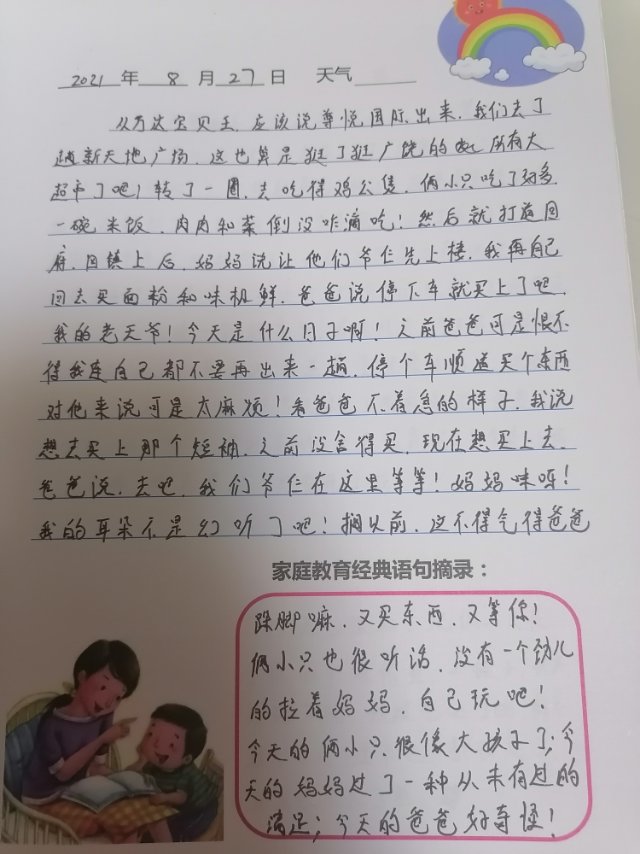 2021 年 8 月 27 日 天气
从万达宝贝王,应该说尊悦国际出来,我们去了
趟新天地广场,这也算是逛了逛广饶的 所有大
超市了吧!转了一圈,去吃得鸡公煲,俩小只吃了好多
一碗米饭,肉肉和菜倒没咋滴吃!然后就打道回
府,回镇上后,妈妈说让他们爷仨先上楼,我再自己
回去买面粉和味极鲜,爸爸说停下车就买上了吧,
我的老天爷!今天是什么日子啊!之前爸爸可是恨不
得我连自己都不要再出来一趟,停个车顺道买个东西
对他来说可是太麻烦!看爸爸不着急的样子,我说
想去买上那个短袖,之前没舍得买,现在想买上去,
爸爸说,去吧,我们爷仨在这里等等!妈妈咪呀!
我的耳朵不是幻听了吧!搁以前,这不得气得爸爸
家庭教育经典语句摘录:
跺脚嘛,又买东西,又等你!
俩小只也很听话,没有一个劲儿
的拉着妈妈,自己玩吧!
今天的俩小只很像大孩子了;今
天的妈妈过了一种从未有过的
满足;今天的爸爸好奇怪!